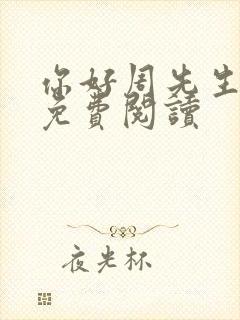 你好周先生
免費閱讀
夜光杯